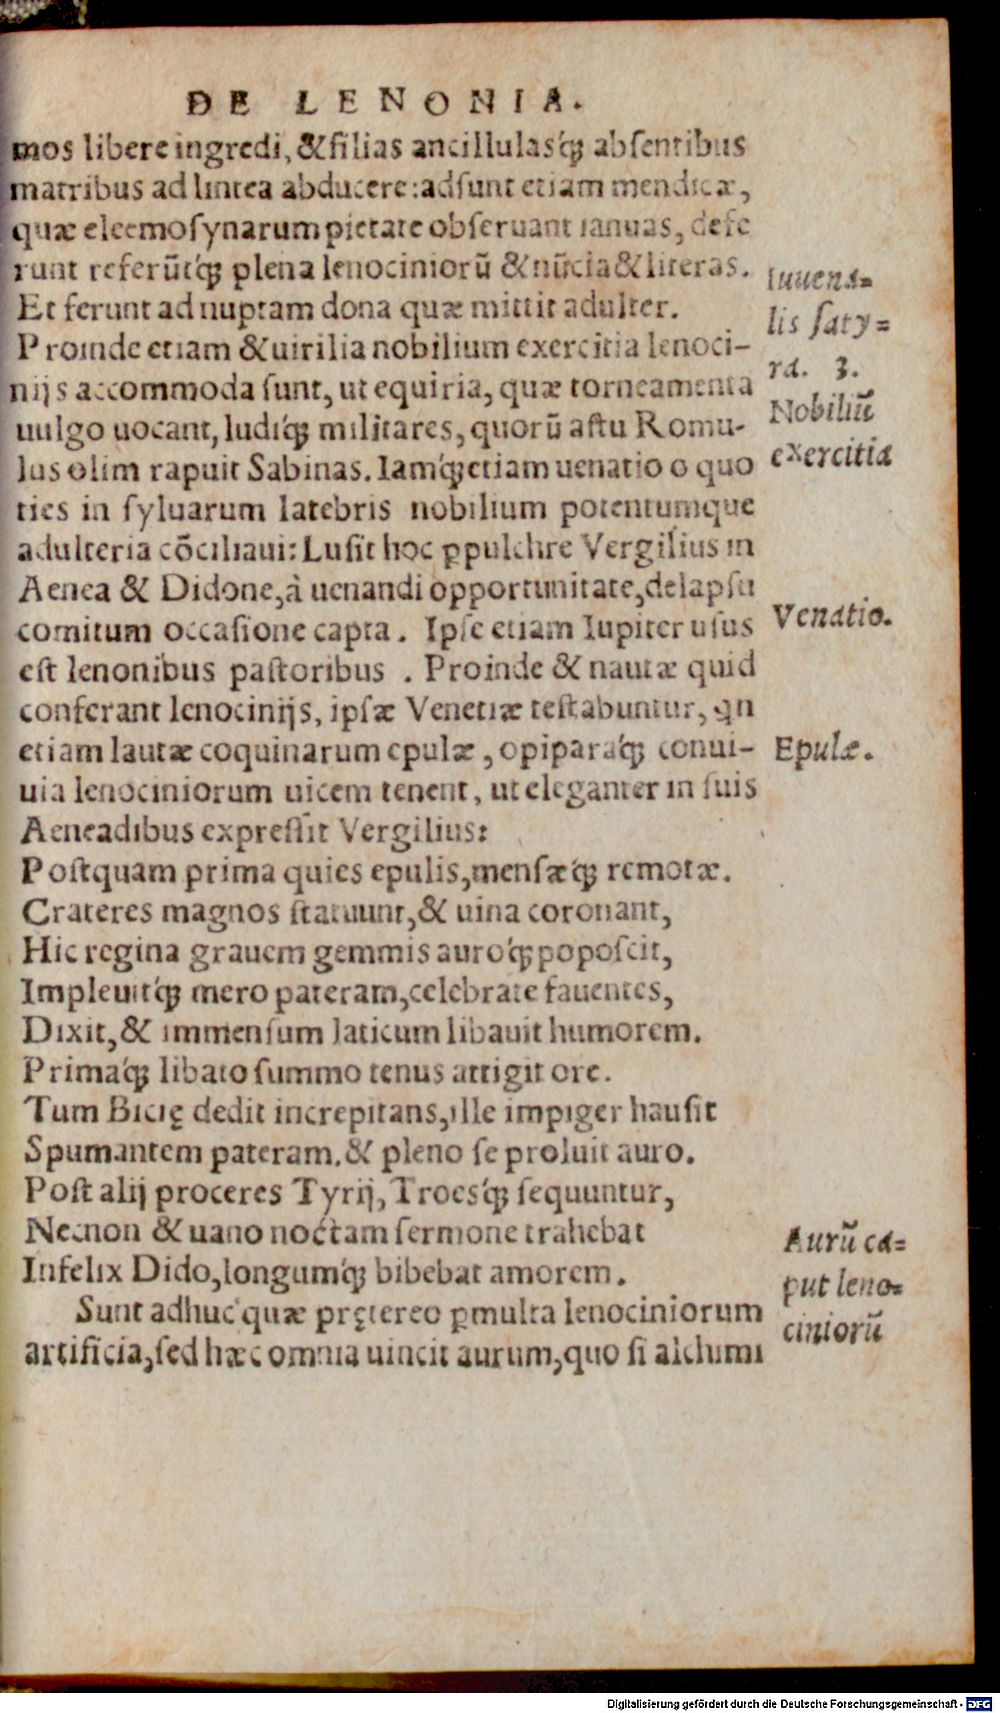 DE LENONIA.
mos libere ingredi, & filias ancillulasq́ꝫ absentibus
matribus ad lintea abducere: adsunt etiam mendicæ,
quæ eleemosynarum pietate obseruant ianuas, defe
runt referũtq́ꝫ plena lenociniorũ & nũcia & literas.
Et ferunt ad nuptam dona quæ mittit adulter.
Iuuena=
lis saty=
ra. 3.
Proinde etiam & uirilia nobilium exercitia lenoci-
nijs accommoda sunt, ut equiria, quæ torneamenta
uulgo uocant, ludiq́ꝫ militares, quorũ astu Romu-
lus olim rapuit Sabinas. Iamq́ꝫ etiam uenatio o quo
Nobiliũ
exercitia
ties in syluarum latebris nobilium potentumque
adulteria cõciliaui: Lusit hoc ꝑpulchre Vergilius in
Aenea & Didone, à uenandi opportunitate, delapsu
comitum occasione capta. Ipse etiam Iupiter usus
Venatio.
est lenonibus pastoribus. Proinde & nautæ quid
conferant lenocinijs, ipsæ Venetiæ testabuntur, qn
etiam lautæ coquinarum epulæ, opiparaq́ꝫ conui-
Epulæ.
uia lenociniorum uicem tenent, ut eleganter in suis
Aeneadibus expressit Vergilius:
Postquam prima quies epulis, mensæq́ꝫ remotæ.
Crateres magnos statuunt, & uina coronant,
Hic regina grauem gemmis auroq́ꝫ poposcit,
Impleuitq́ꝫ mero pateram, celebrate fauentes,
Dixit, & immensum laticum libauit humorem.
Primaq́ꝫ libato summo tenus attigit ore.
Tum Bicię dedit increpitans, ille impiger hausit
Spumantem pateram. & pleno se proluit auro.
Post alij proceres Tyrij, Troesq́ꝫ sequuntur,
Necnon & uano noctam sermone trahebat
Infelix Dido, longumq́ꝫ bibebat amorem.
Sunt adhuc quæ prętereo ꝑmulta lenociniorum
artificia, sed hæc omnia uincit aurum, quo si alchumi
Aurũ ca=
put leno=
ciniorũ
Digitalisierung gefördert durch die Deutsche Forschungsgemeinschaft - DFG